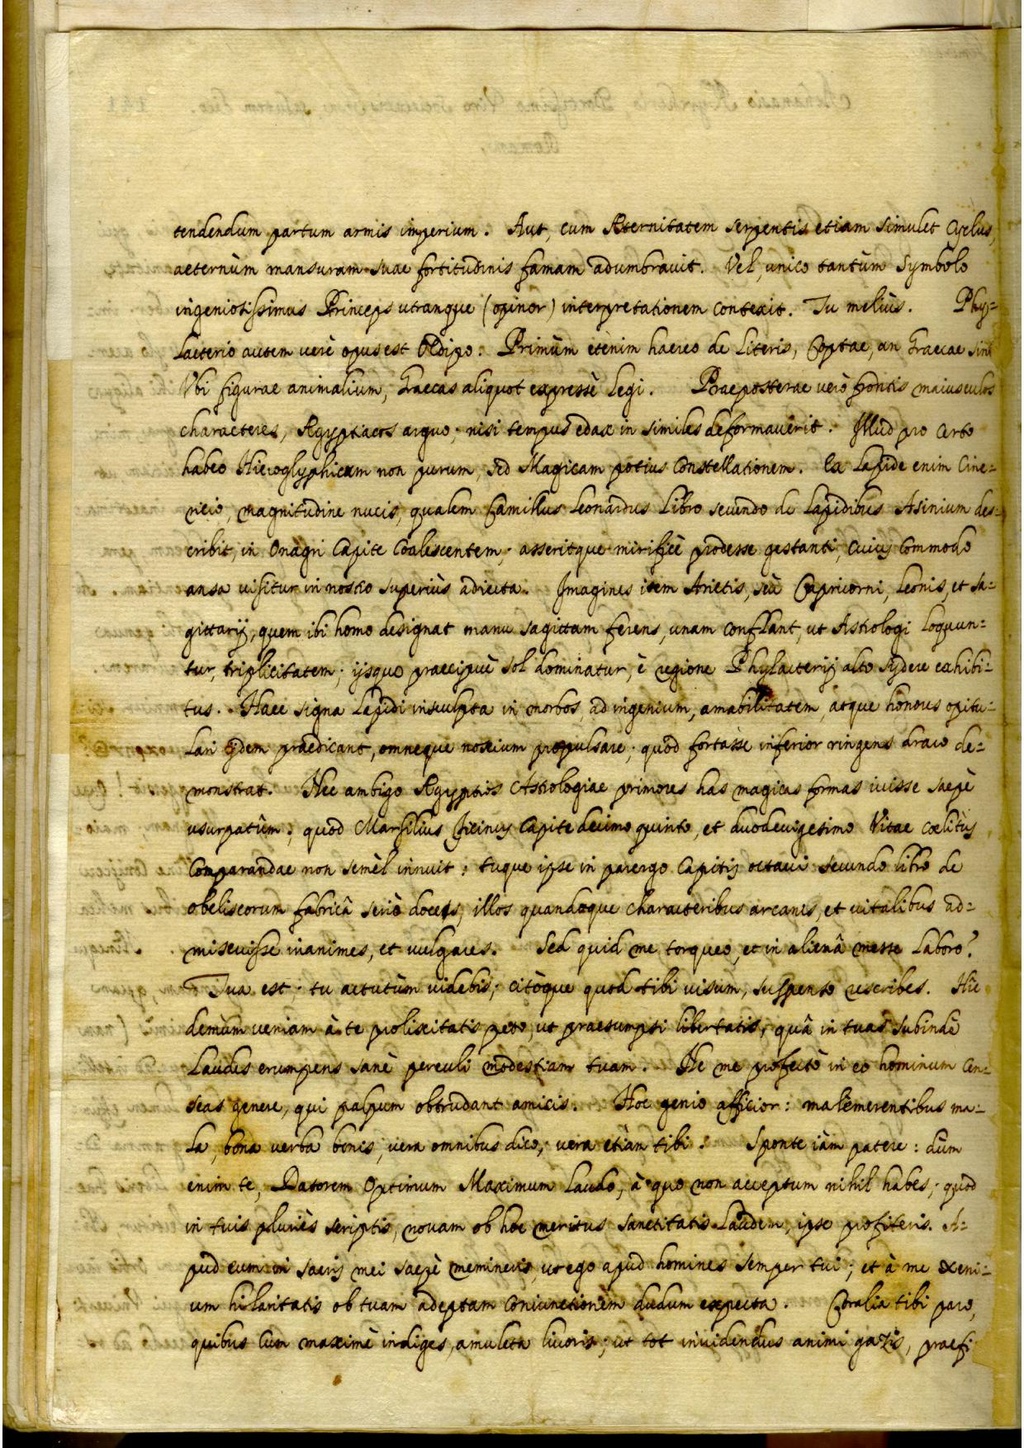 tendendum partum armis imperium. Aut, cum Æternitatem serpentis etiam simulet Cyclus,
aeternùm mansuram suae fortitudinis famam adumbrauit. Vel, unico tantùm Symbolo
ingeniosissimus Princeps utranque (opinor) interpretationem contexit. Tu meliùs. Phy-
lacterio autem verè opus est Oedipo: Primùm etenim haereo de Literis, Coptae, an Graecae sint
Vbi figurae animalium, Graecas aliquot expressè legi. Praeposterae verò frontis maiusculos
characteres, Ægyptiacos arguo, nisi tempus edax in similes deformauerit. Illud pro certo
habeo Hieroglyphicum non purum, sed Magicam potius Constellationem. Ex Lapide enim Cine-
ricio, magnitudine nucis, qualem Camillus Leonardus Libro secundo de Lapidibus Asinium des-
cribit, in Onagri Capite Coalescentem, asseritque mirificè prodesse gestanti, Cuius Commodo
ansa visitur in nostro superiùs adiecta. Imagines item Arietis, seù Capricorni, Leonis, et Sa-
gittarij, quem ibi homo designat manu sagittam ferens, unam Conflant, ut Astrologi Loquun-
tur, triplicitatem; ijsque praecipuè sol dominatur, è regione Phylacterij alto sydere exhibi-
tus. Haec signa Lapidi insculpta in morbos, ad ingenium, amabilitatem, atque honores opitu-
lari ijdem praedicant, omneque noxium propulsare; quod fortasse inferior ringens draco de-
monstrat. Nec ambigo Ægyptios Astrologiae primores has magicas formas iuisse saepè
usurpatùm; quod Marsilius Ficinus Capite decimo quinto, et duodeuigesimo Vitae Coelitus
Comparandae non semèl innuit; tuque ipse in parergo Capitis octaui secundo libro de
obeliscorum fabricâ seriò doces, illos quandoque characteribus arcanis, et uitalibus ad-
miscuisse inanimes, et vulgares. Sed quid me torqueo, et in alienâ messe Laboro?
Tua est; tu actutùm videbis; citòque quod tibi uisum, suspenso rescribes. Hic
demùm veniam à te prolixitatis peto, ut praesumpti libertatis, quâ in tuas subindè
Laudes erumpens sanè perculi modestiam tuam. Ne me profectò in eo hominum Cen-
seas genere, qui palpum obtrudant amicis. Hoc genio afficior: malèmerentibus ma-
la, bona verba bonis, vera omnibus dico, vera etiàm tibi. Sponte iàm patere: dùm
enim te, Datorem Optimum Maximum Laudo, à quo non acceptum nihil habes; quod
in tuis pluriès scriptis, nouam ob hoc meritus sanctitatis Laudem, ipse profiteris. A-
pud eum in sacris mei saepè memineris, ut ego apud homines semper tui; et à me xeni-
um hilaritatis ob tuam adeptam Coniunctionem dudum expecta. Coralia tibi paro,
quibus Cùm maximè indiges, amuleta liuoris; ut tot inuidendus animi gazis, praefi